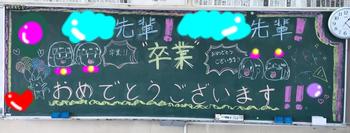 先輩 先輩!!
"卒業"
卒業!
おめでとうございます!
おめでとうございます!!